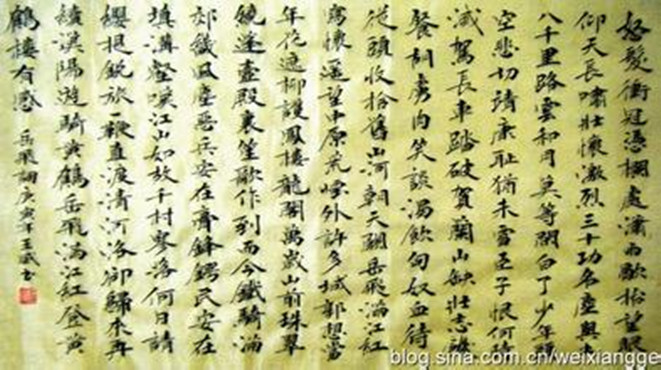 怒髮衝冠憑欄處瀟雨歇抬望眼
仰天長嘯壯懷激烈三十功名塵與土
八千里路雲和月莫等閒白了少年頭
空悲切靖康恥猶未雪臣子恨何時
滅駕長車踏破賀蘭山缺壯志飢
餐胡虜肉笑談渴飲匈奴血待
從頭收拾舊山河朝天闕岳飛滿江紅
寫懷遙望中原荒煙外許多城郭想當
年花遮柳護鳳樓龍閣萬歲山前珠翠
繞蓬壺殿裏笙歌作到而今鐵騎滿
郊畿風塵惡兵安在膏鋒鍔民安在
填溝壑嘆江山如故千村寥落何日請
纓提銳旅一鞭直渡清河洛卻歸來再
續漢陽遊騎黃鶴岳飛滿江紅登黃
鶴樓有感 岳飛詞庚寅年王武書
blog.sina.com.cn/weixiangge